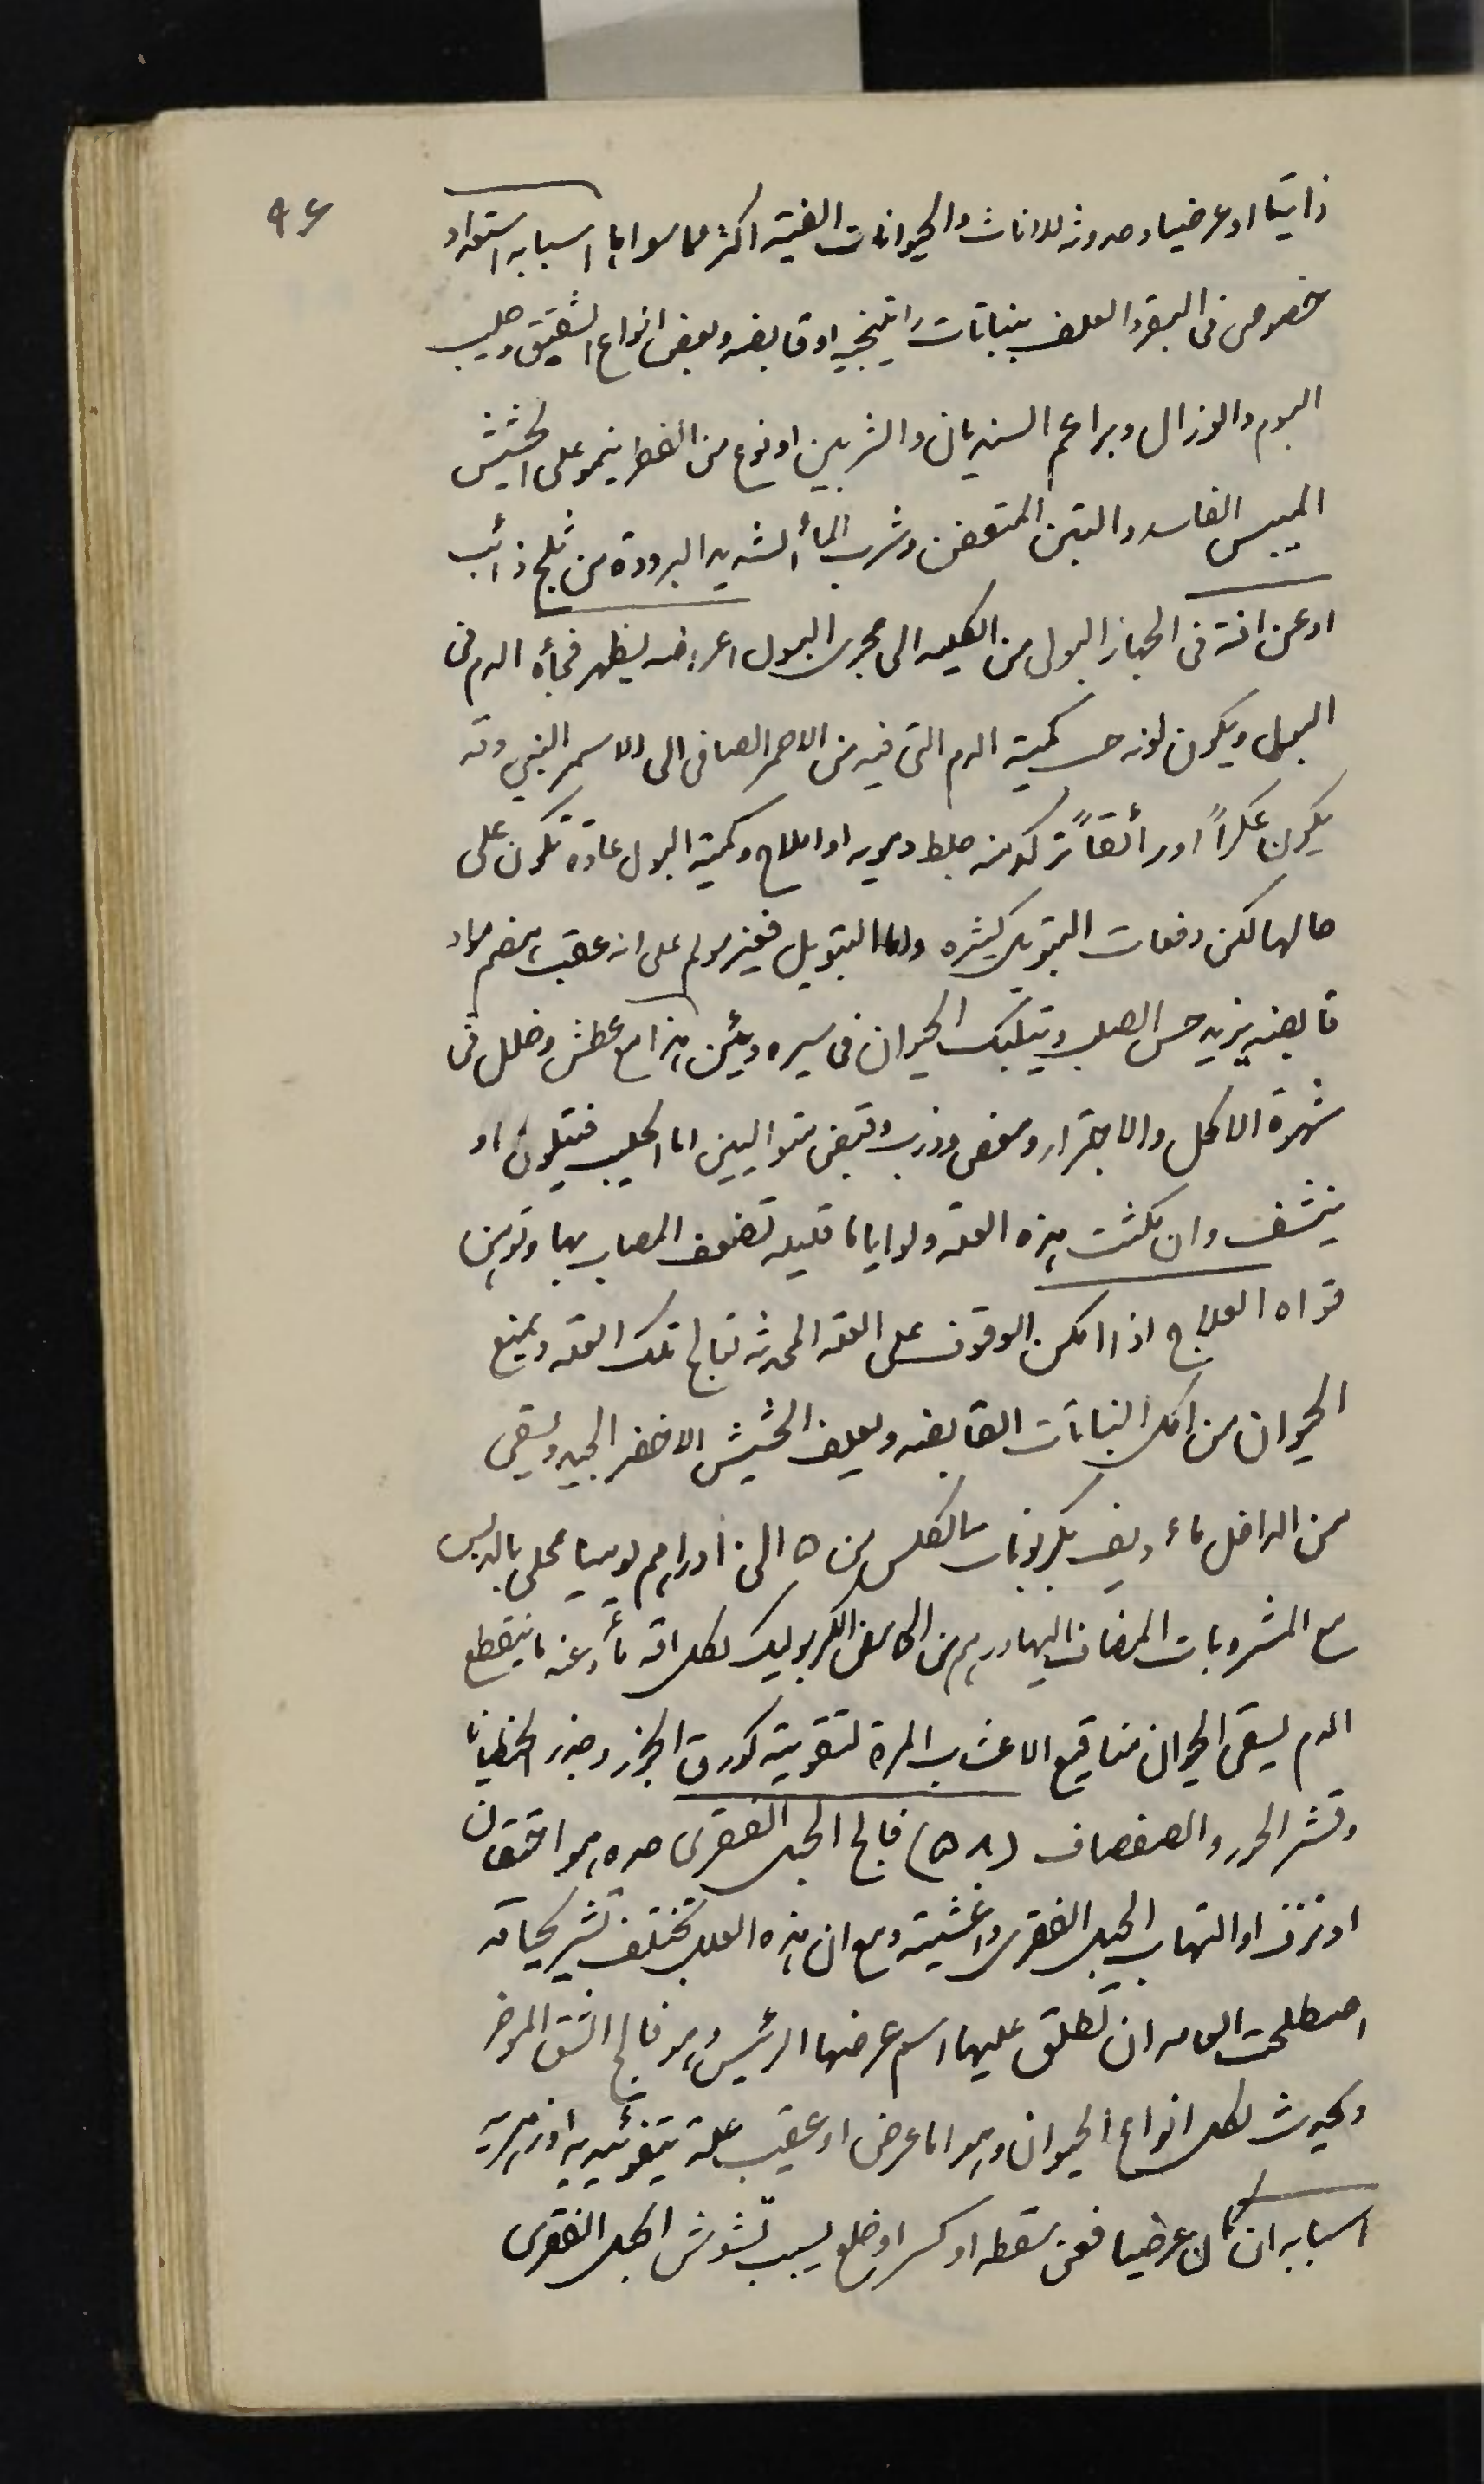 ٩٤
ذاتيا او عرضيا وحدوثه للاناث والحيوانات الفتية اكثر مما سواها اسبابه استعداد
خصوصي في البقر والعلف بنباتات راتينجيه او قابضه وبعض انواع الشقيق وحليب
البوم والوزال وبراعم السنديان والشربين او نوع من الفطر ينمو على الحشيش
الميبس الفاسد والتبن المتعفن وشرب المأ الشديد البرودة من ثلج ذائب
او عن افة في الجهاز البولي من الكليه الى مجرى البول اعراضه يظهر فجأة الدم في
البول ويكون لونه حسب كمية الدم التي فيه من الاحمر الصافي الى الاسمر البني وقد
يكون عكراً او رائقاً تركد منه جلط دمويه او املاح وكمية البول عادة تكون على
حالها لكن دفعات التبويل كثيره واما التبويل فغير مولم على انه عقب هضم مواد
قابضه يزيد حس الصلب ويتلبك الحيوان في سيره ويئن هذا مع عطش وخلل في
شهوة الاكل والاجترار ومغص وذرب وقبض متواليين اما الحليب فيتلون او
ينشف وان مكثت هذه العله ولو اياما قليله تضعف المصاب بها وتوهن
قواه العلاج اذا امكن الوقوف على العله المحدثه تعالج تلك العله ويمنع
الحيوان من اكل النباتات القابضه ويعلف الحشيش الاخضر الجيد ويسقى
من الداخل ماء وبكربونات الكلس من ٥ الى ١٠ دراهم يوميا محلى بالدبس
مع المشروبات المضاف اليها درهم من الحامض الكربوليك لكل اقة مأ وعندما ينقطع
الدم يسقى الحيوان مناقيع الاعشاب المرة لتقويته كورق الجوز وجذر الجنطيانا
وقشر الحور والصفصاف (٥٨) فالج الحبل الفقري حده هو احتقان
او نزف او التهاب الحبل الفقري واغشيته ومع ان هذه العلل تختلف تشريحيا قد
اصطلحت العامه ان تطلق عليها اسم عرضها الرئيس وهو فالج الشق الموخر
ويحدث لكل انواع الحيوان وهو اما عرضي او عقيب علة تيفوئيديه او زهريه
اسبابه ان كان عرضيا فعن سقطه او كسر او خلع يسبب تشوش الحبل الفقري